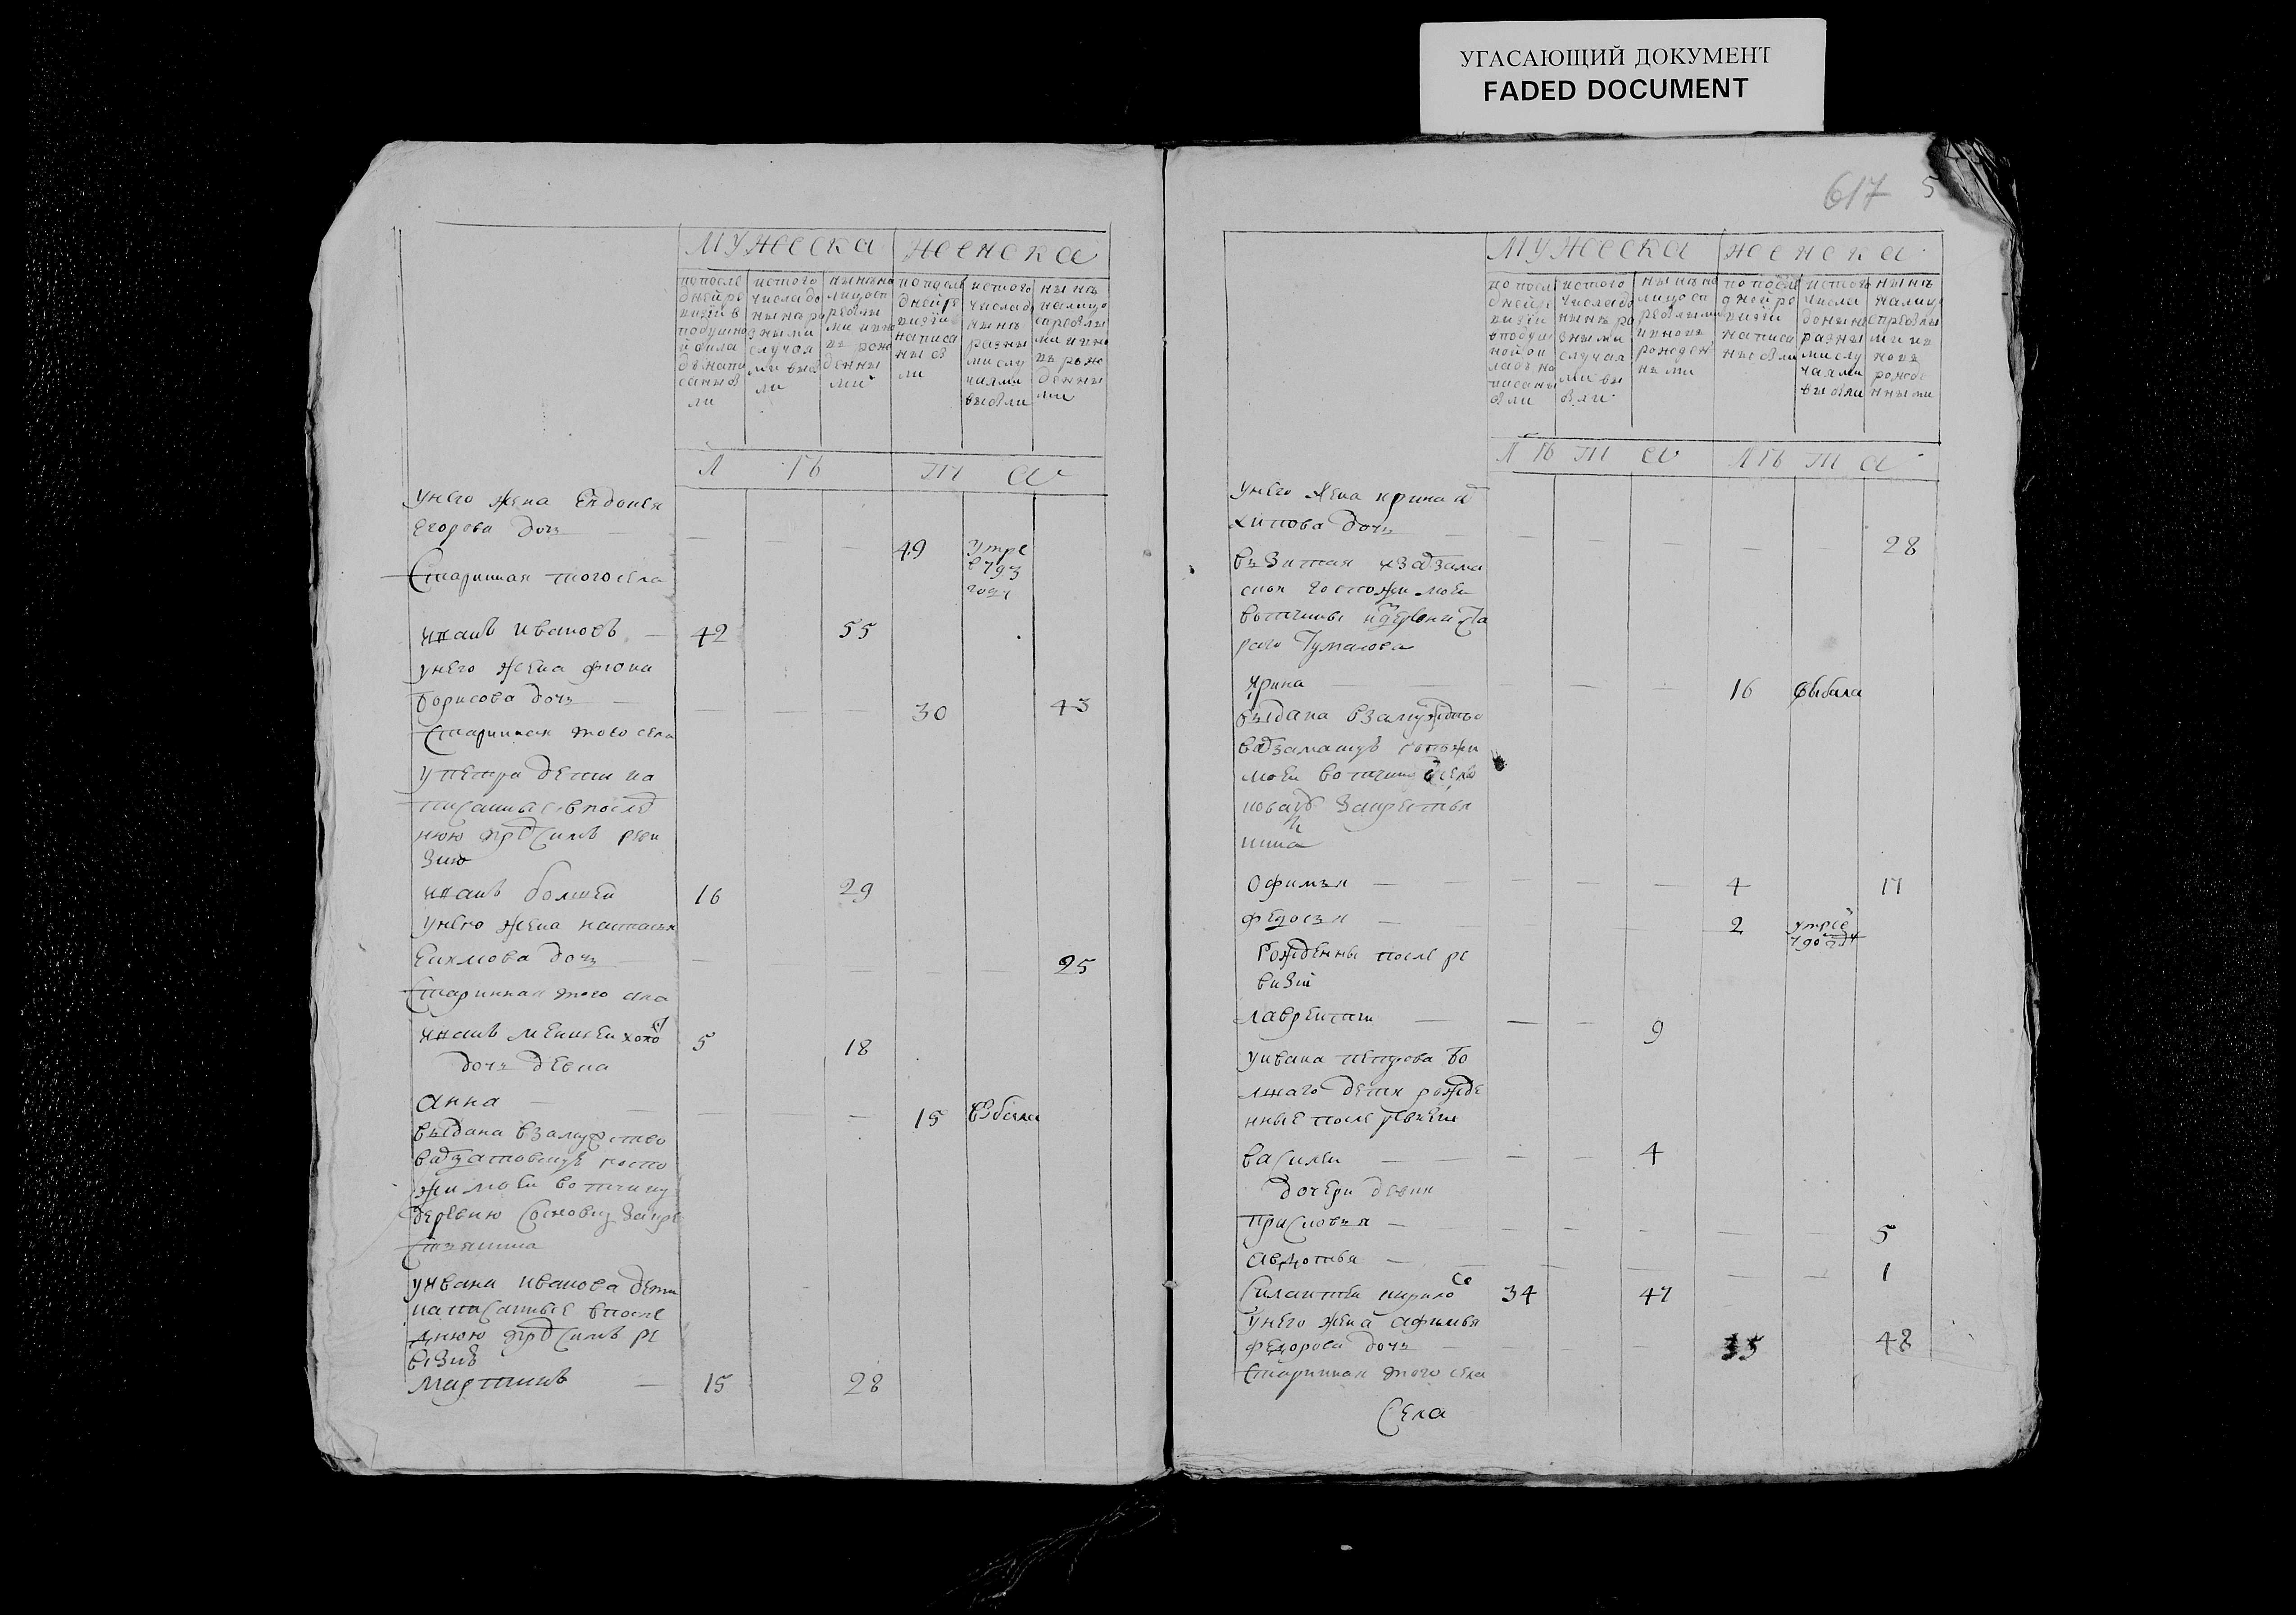 УГАСАЮЩИЙ ДОКУМЕНТ
FADED DOCUMENT
617 5
мужеска женска
по после
дней ре
визїи в
подушно
й окла
де напи
саны бы
ли
ис того
числа до
ныне ра
зными
случая
ми выб
ли
ныне на
лицо с п
ребылы
ми и вно
вь рож
денны
ми
по после
дней ре
визїи
написа
ны бы
ли
ис того
числа д
ныне
разны
ми слу
чаями
выбыли
ныне
налицо
с пребылы
ми и вно
вь рож
денны
ми
Л ѣ т а
у него жена Евдокея
Егорова дочь
49 умре
в 793
году
старинная того села
Иванъ Ивановъ 42 55
у него жена фіона
Борисова дочь 30 43
старинная того села
у Петра дети на
писанные в послед
нюю пред симъ реви
зию
Иванъ болшей 16 29
у него жена настасья
Екимова дочь 25
старинная того села
Иванъ меншей холо 5 18
дочь девка
Анна 15 выбыла
выдана в замужство
госпо
жи моей вотчину
деревню Сосновку за кре
стьянина
у Ивана Иванова дети
написанные в после
днюю пред симъ ре
визию
Мартинъ 15 28
мужеска женска
по посл
дней ре
визїи
в подуш
ной ок
ладъ на
писаны
были
ис того
числа до
ныне ра
зными
случая
ми вы
были
ныне на
лицо с п
ребылыми
и вновь
рожден
ными
по после
дней ре
визїи
написа
ны были
ис того
числа
до ныне
разны
ми слу
чаями
выбыли
ныне
налицо
с пребылы
ми и в
новь
рожде
нными
Л ѣ т а Л ѣ т а
у него жена ирина а
хипова дочь 28
взятая
госпожи моей
вотчины из деревни Ста
раго
Ирина 16 выбыла
выдана в замужство
госпожи
моей вотчину в село
за крестьян
ина
Офимья 4 17
федосья 2 умре
790 году
Рожденны после ре
визїи
лаврентей 9
у Ивана петрова бо
лшаго дети рожде
нные после ревизии
василей 4
дочери девки
прасковья 5
авдотья 1
Силантей кирилов 34 47
у него жена афимья
федорова дочь 35 48
старинная того села
села